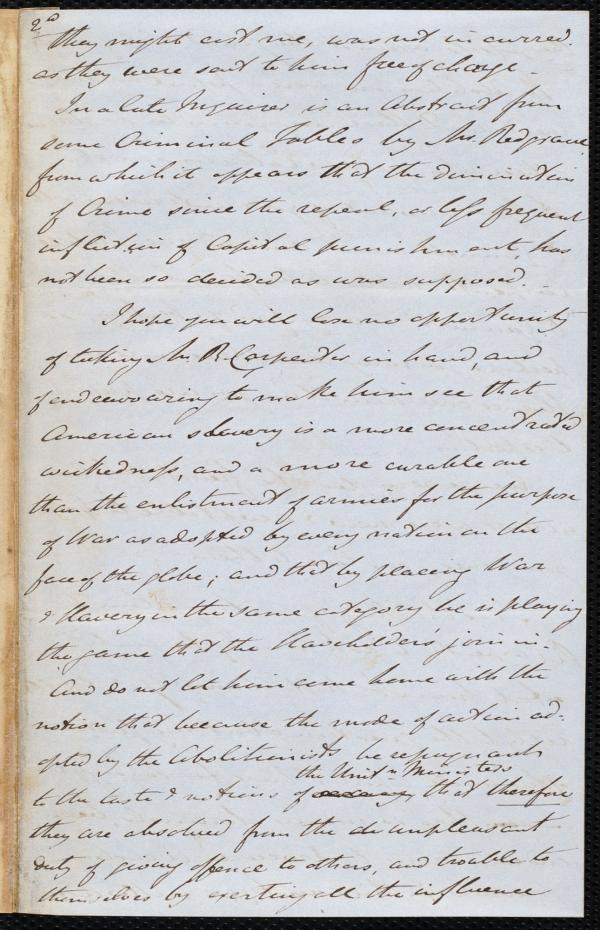 2d
they might cost me, was not incurred.
as they were sent to him free of charge -
In a late Inquirer is an Abstract from
some Criminal Tables by Mr. Redgrave
from which it appears that the diminution
of Crime since the repeal, or less frequent
infliction of Capital punishment, has
not been so decided as was supposed.
I hope you will lose no opportunity
of taking Mr. R. Carpenter in hand, and
of endeavouring to make him see that
American slavery is a more concentrated
wickedness, and a more curable one
than the enlistment of armies for the purpose
of War as adopted by every nation on the
face of the globe; and that by placing War
& Slavery in the same category he is playing
the game that the Slaveholders join in.
And do not let him come home with the
notion that because the mode of action ad-
opted by the Abolitionists be repugnant
the Unitn Ministers
to the taste & notions of that therefore
they are absolved from the unpleasant
duty of giving offence to others, and trouble to
themselves by exerting all the influence